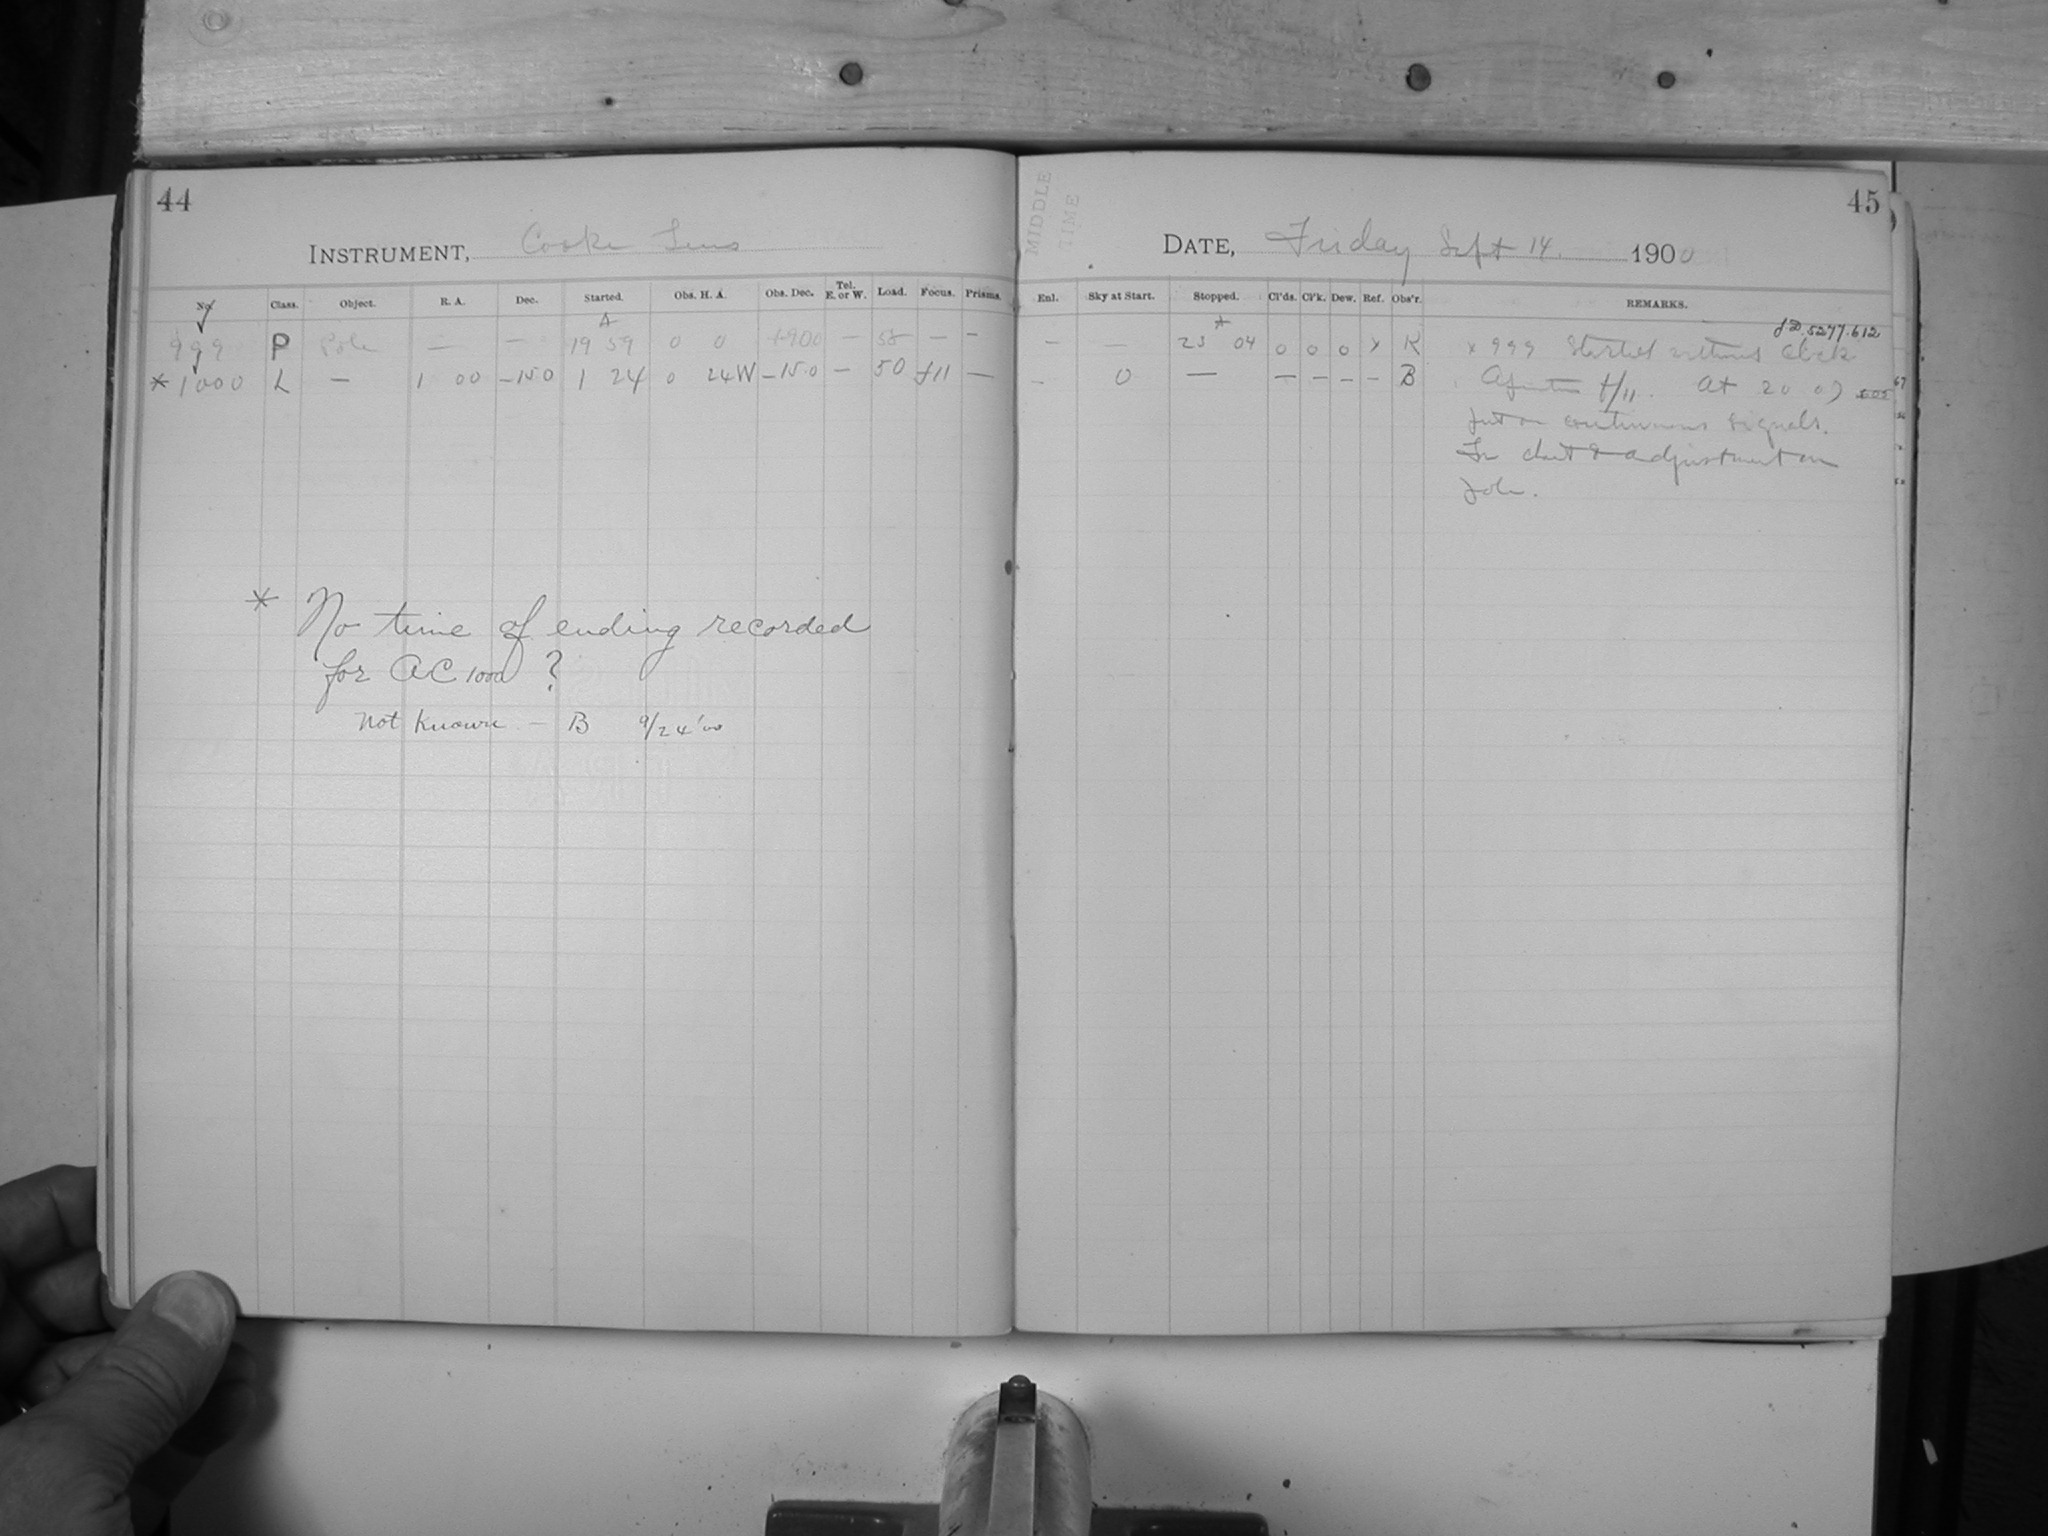 44
INSTRUMENT, Cooke Lens
No. Class. Object. R. A. Dec. Started. Obs. H. A. Obs. Dec. Tel. E. or W. Load. Focus. Prisms.
999 P Pole — — 19 59 0 0 +900 — 58 — —
* 1000 L — 1 00 -150 1 24 0 24W -15.0 — 50 f11 —
* No time of ending recorded
for AC 1000 ?
Not known — B 9/24'00
MIDDLE
TIME
45
DATE, Friday Sept 14. 1900
Enl. Sky at Start. Stopped. Cl'ds. Cl'k. Dew. Ref. Obs'r. REMARKS.
J.D. 5277.612
— — 23 04 0 0 0 x K x 999 Started without clock
- 0 — — — — — B f/11. At 20 07
put on continuous signals.
adjustment on
pole.